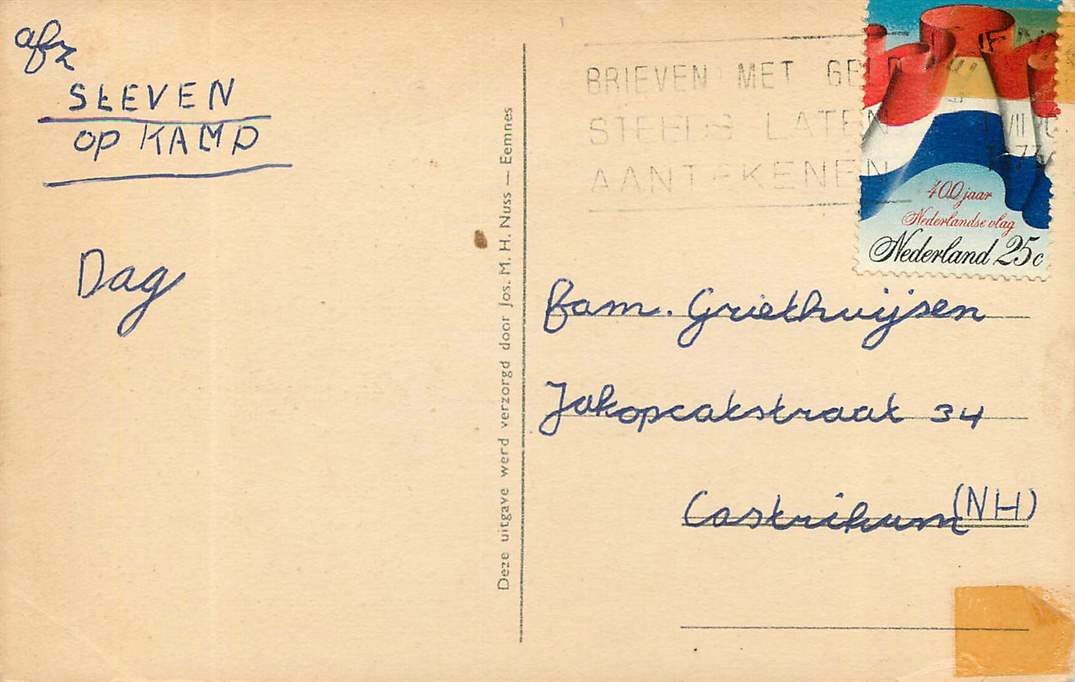 afz
STEVEN
OP KAMP
Dag
Deze uitgave werd verzorgd door Jos. M. H. Nuss — Eemnes
BRIEVEN MET GELD
STEEDS LATEN
AANTEKENEN
400 jaar
Nederlandse vlag
Nederland 25c
fam. Griethuijsen
Jakopcatstraat 34
Castrikum (NH)